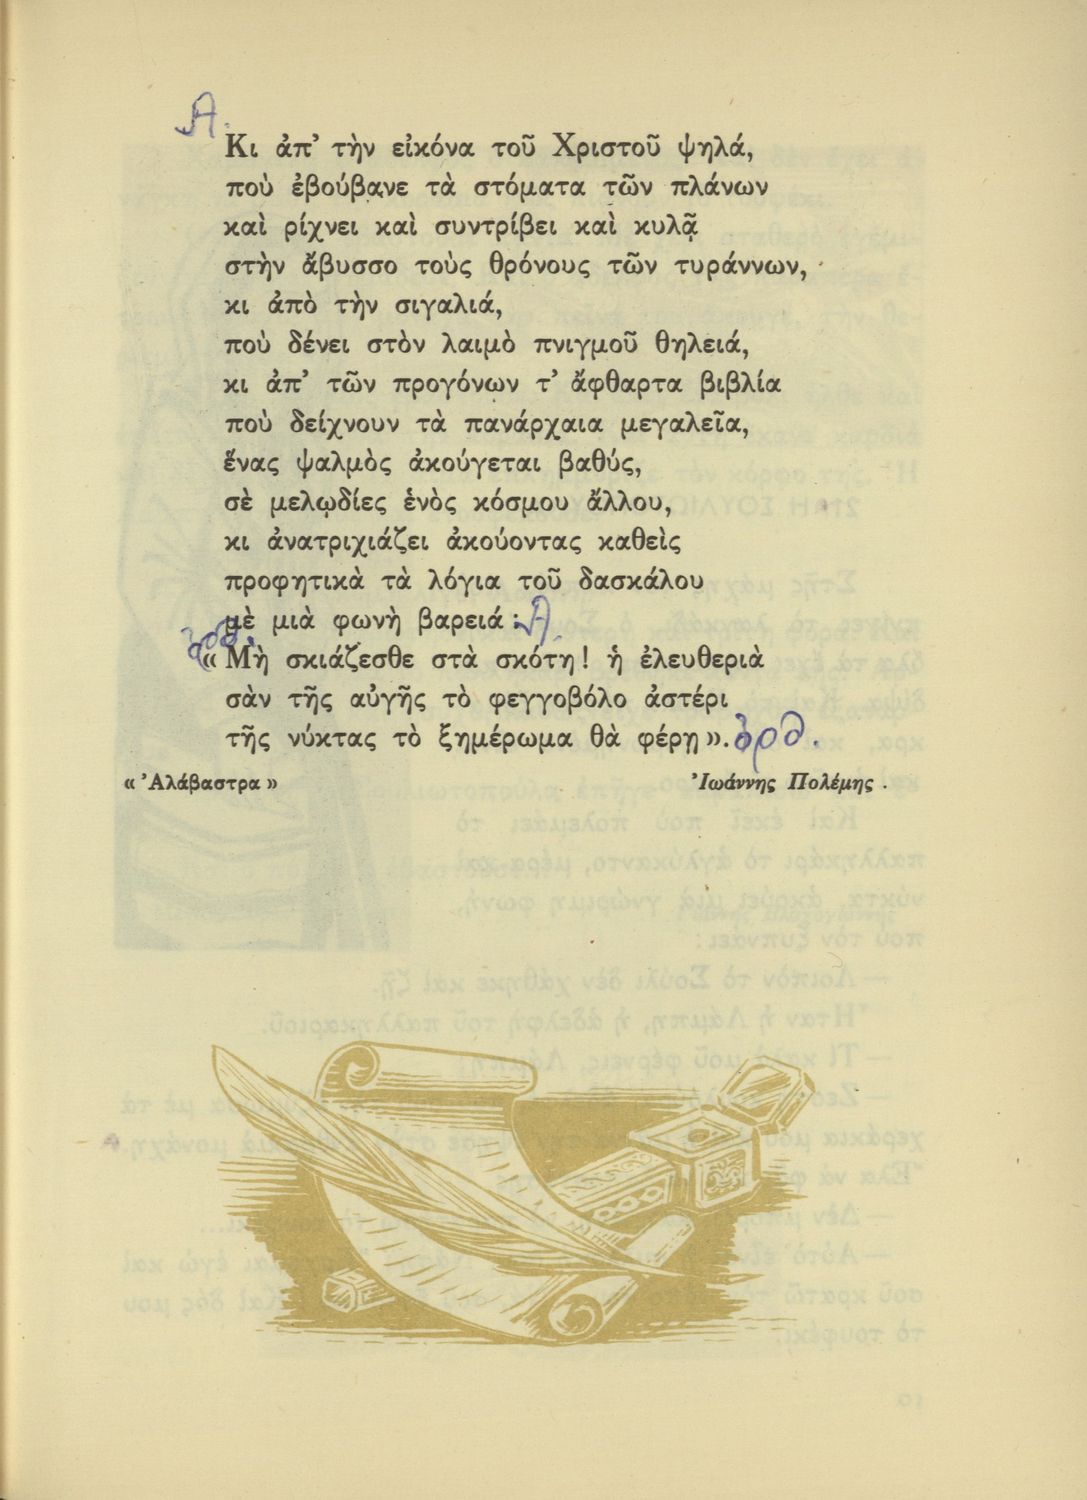 Α.
Κι ἀπ’ τὴν εἰκόνα τοῦ Χριστοῦ ψηλά,
ποὺ ἐβούβανε τὰ στόματα τῶν πλάνων
καὶ ρίχνει καὶ συντρίβει καὶ κυλᾷ
στὴν ἄβυσσο τοὺς θρόνους τῶν τυράννων,
κι ἀπὸ τὴν σιγαλιά,
ποὺ δένει στὸν λαιμὸ πνιγμοῦ θηλειά,
κι ἀπ’ τῶν προγόνων τ’ ἄφθαρτα βιβλία
ποὺ δείχνουν τὰ πανάρχαια μεγαλεῖα,
ἕνας ψαλμὸς ἀκούγεται βαθύς,
σὲ μελῳδίες ἑνὸς κόσμου ἄλλου,
κι ἀνατριχιάζει ἀκούοντας καθεὶς
προφητικὰ τὰ λόγια τοῦ δασκάλου
μὲ μιὰ φωνὴ βαρειά : Α.
ὀρθ.
« Μὴ σκιάζεσθε στὰ σκότη! ἡ ἐλευθεριὰ
σὰν τῆς αὐγῆς τὸ φεγγοβόλο ἀστέρι
τῆς νύκτας τὸ ξημέρωμα θὰ φέρῃ ». ὀρθ.
« Ἀλάβαστρα » Ἰωάννης Πολέμης .